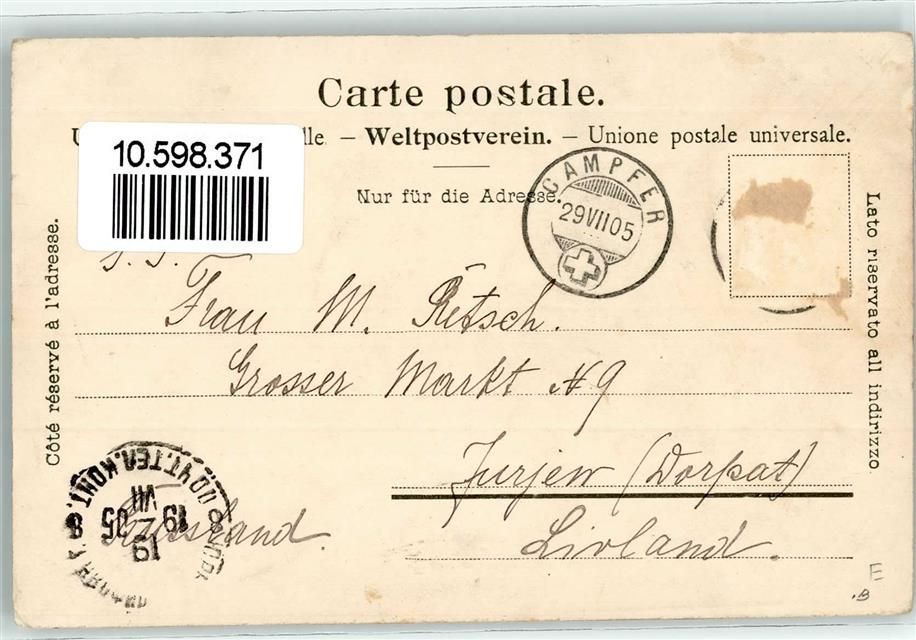 Carte postale.
lle. – Weltpostverein. – Unione postale universale.
10.598.371
Nur für die Adresse.
CAMPFER
29 VII 05
Côté réservé à l'adresse.
Lato riservato all indirizzo.
Frau M. Retsch.
Grosser Markt N 9
Jurjew (Dorpat)
Livland.
Russland.
19 VII 05
19
E
B